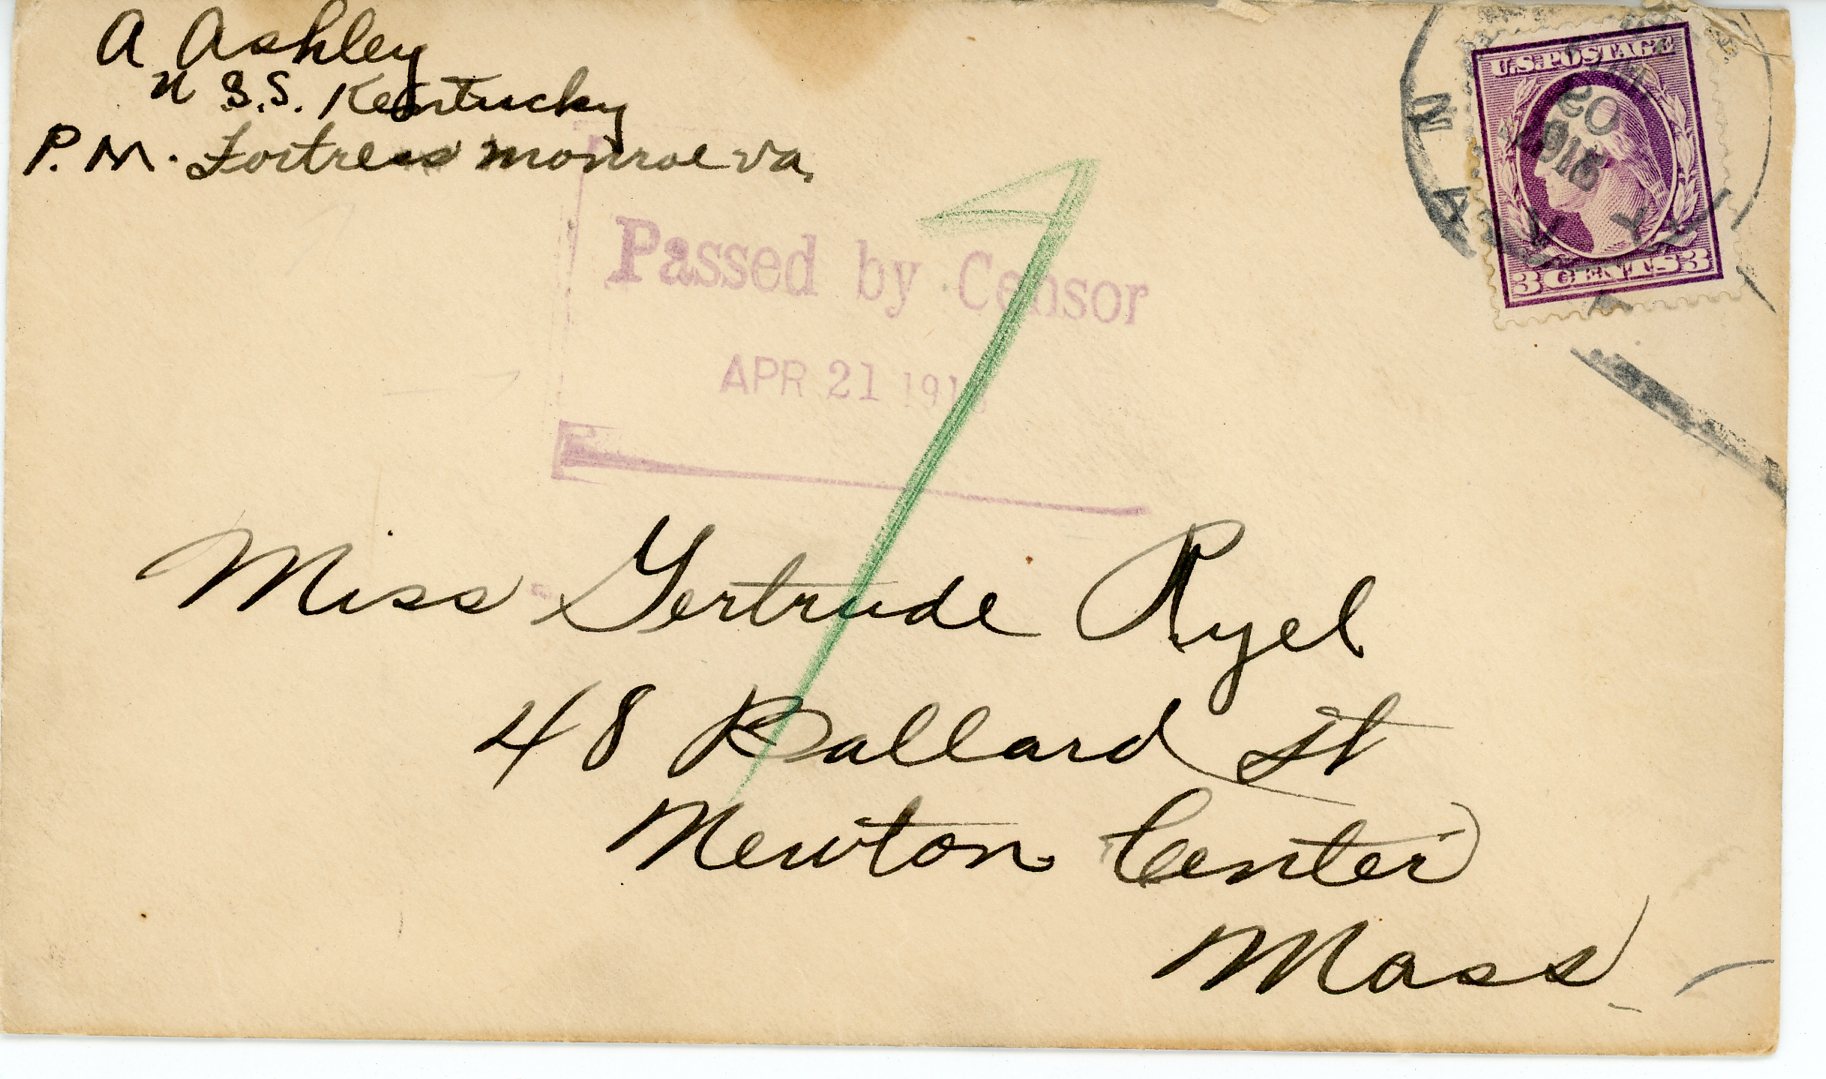 A Ashley
U.S.S. Kentucky
P.M. Fortress Monroe va.
U.S. POSTAGE
20
1918
3 CENTS 3
Passed by Censor
APR 21 1918
Miss Gertrude Ryel
48 Ballard St
Newton Center
Mass